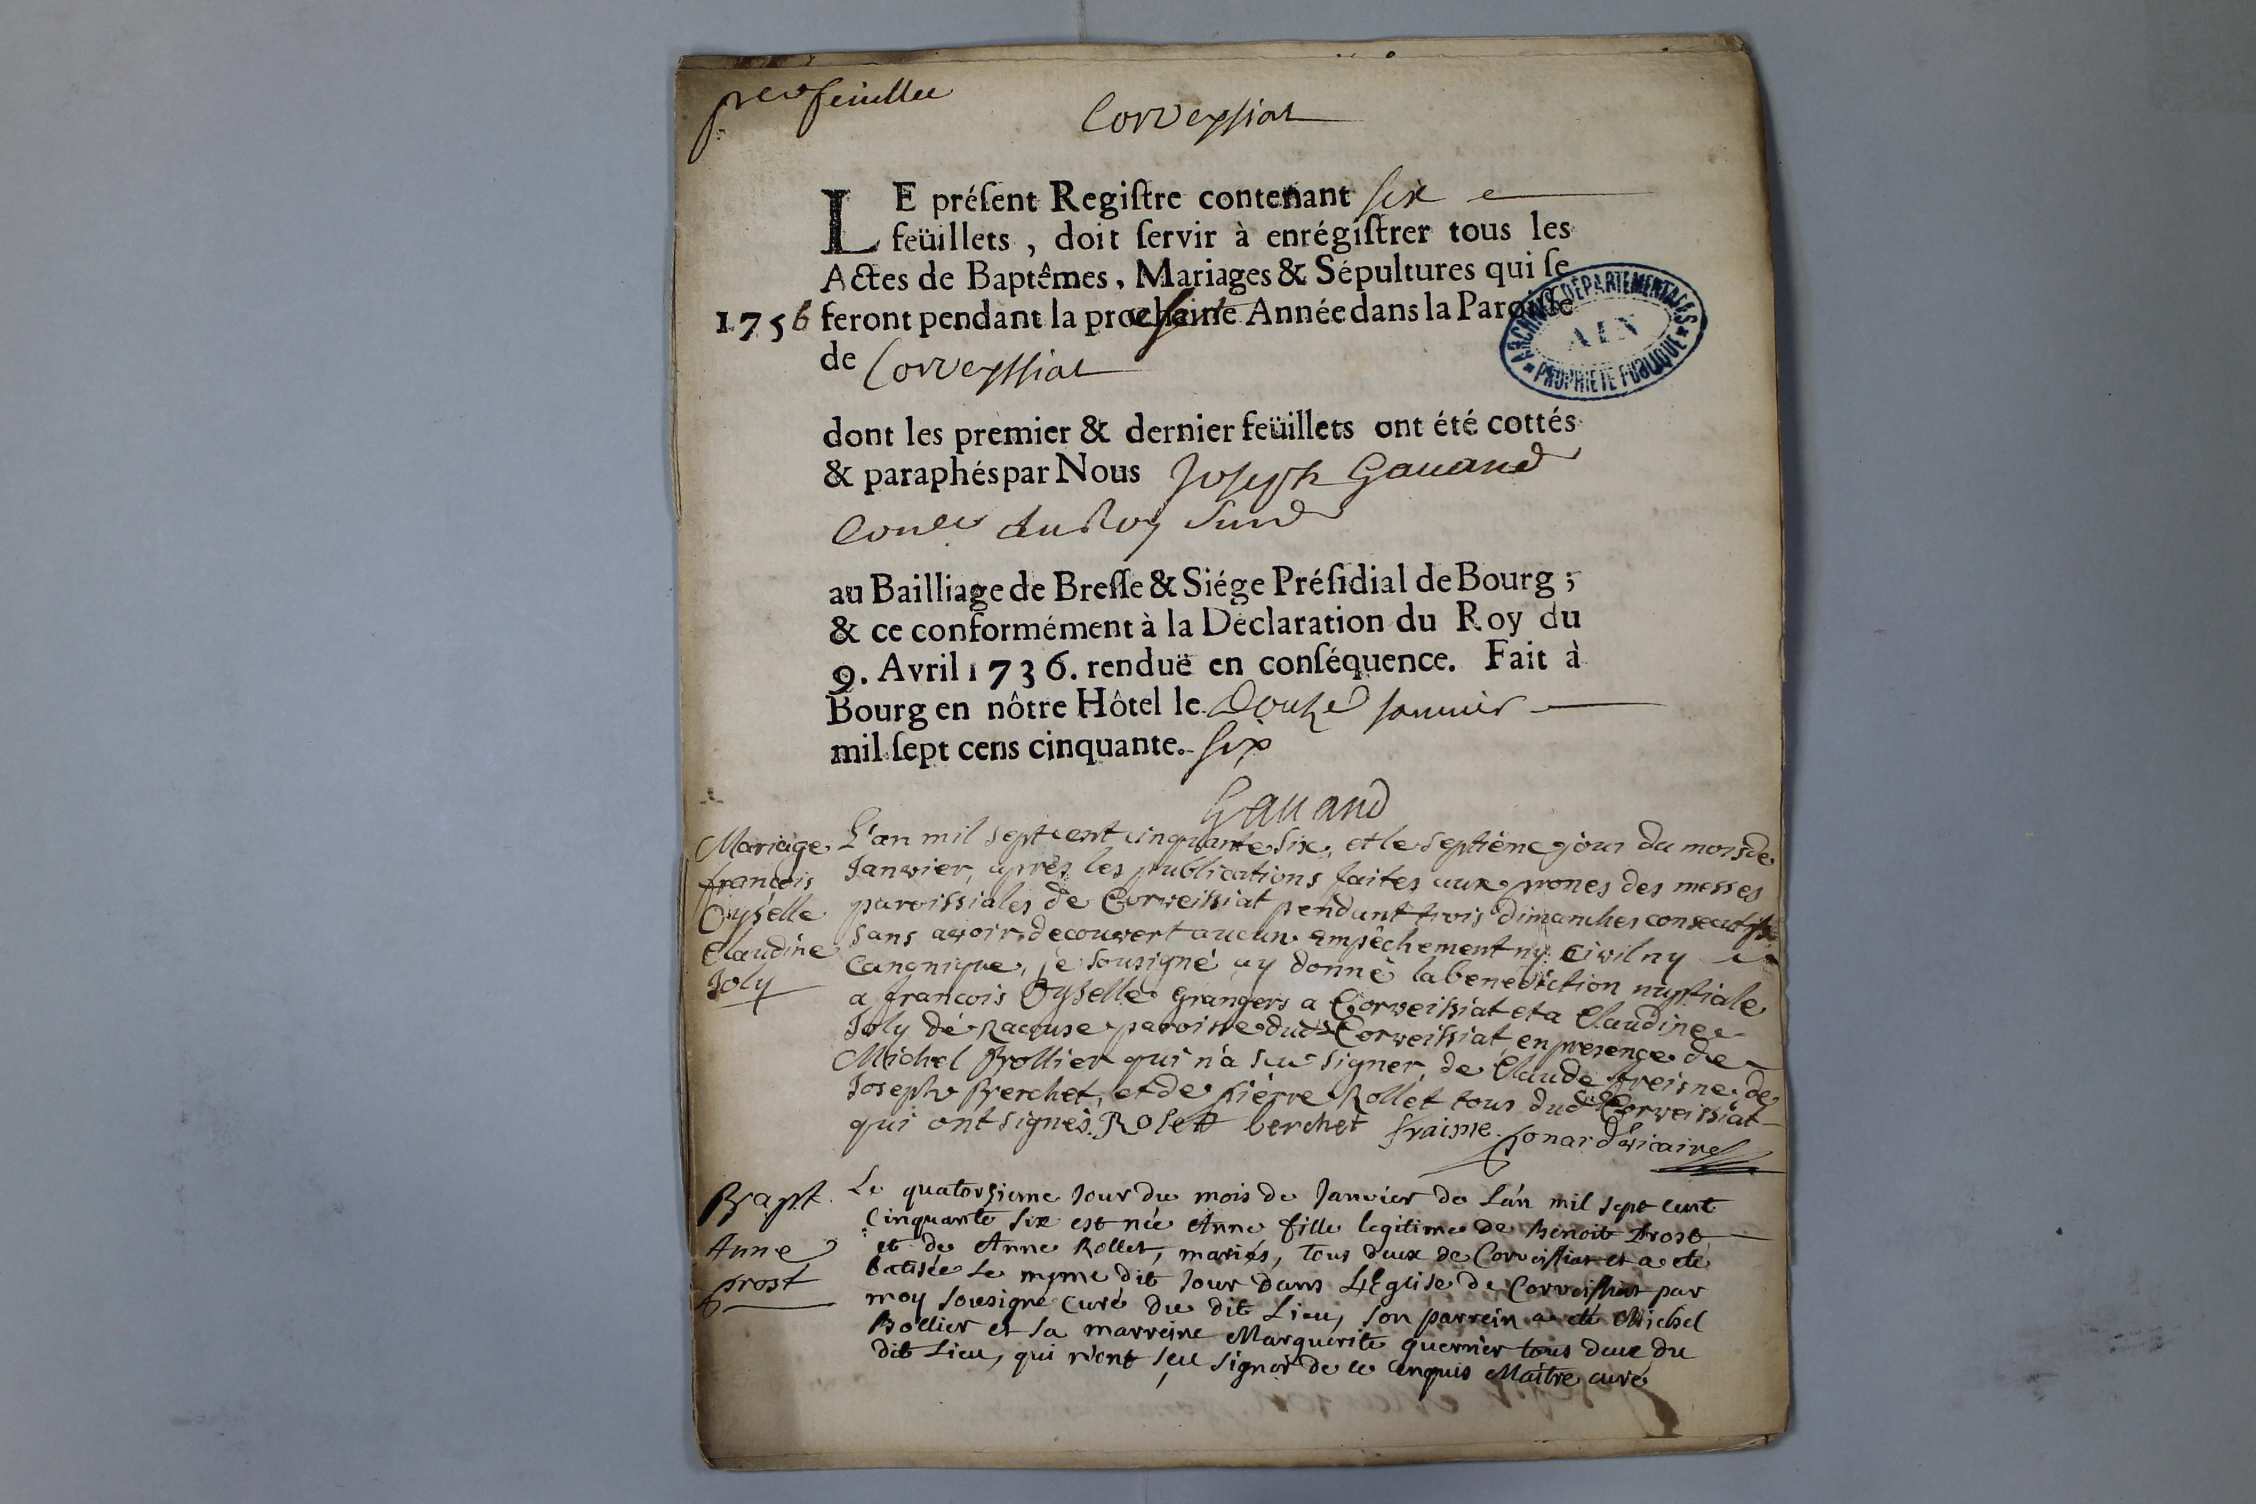 p.er feuillet
Corveyssiat
LE préſent Regiſtre contenant six
feüillets, doit ſervir à enrégiſtrer tous les
Actes de Baptêmes, Mariages & Sépultures qui ſe
1756 feront pendant la prochaine Année dans la Paroiſſe
de Corveyssiat
ARCHIVES DÉPARTEMENTALES
AIN
PROPRIÉTÉ PUBLIQUE
dont les premier & dernier feüillets ont été cottés
& paraphés par Nous Joseph Gauand
Con.er du Roy
au Bailliage de Breſſe & Siége Préſidial de Bourg;
& ce conformément à la Déclaration du Roy du
9. Avril 1736. renduë en conſéquence. Fait à
Bourg en nôtre Hôtel le Douze Janvier
mil ſept cens cinquante. six
Gauand
Mariage
françois
Oyselle
Claudine
Joly
L'an mil sept cent cinquante six, et le septiéme jour du mois de
Janvier, après les publications faites aux prones des messes
paroissiales de Corveissiat pendant trois dimanches consecutifs
sans avoir decouvert aucun empêchement ny civil ny
canonique, je sousigné ay donné la benediction nuptiale
a francois Oyselle grangers a Corveissiat et a Claudine
Joly de Racouse paroisse dud Corveissiat, en presence de
Michel Bollier qui n'a scu signer, de Claude freisne de
Joseph Berchet, et de pierre Rollet tous dud Corveissiat
qui ont signés. Rolet berchet fraisne. Gonard vicaire
Bapt.
Anne
prost
Le quatorzieme Jour du mois de Janvier de L'an mil sept cent
Cinquante six est née Anne fille legitime de Benoit Prost
et de Anne Rollet, mariés, tous deux de Corveissiat et a eté
batisée le myme dit Jour dans L'Eglise de Corveissiat par
moy sousigné curé du dit Lieu, son parrein a eté Michel
Bollier et sa marreine Marguerite guerrier tous deux du
dit Lieu, qui n'ont sçu signer de ce enquis Maitre curé